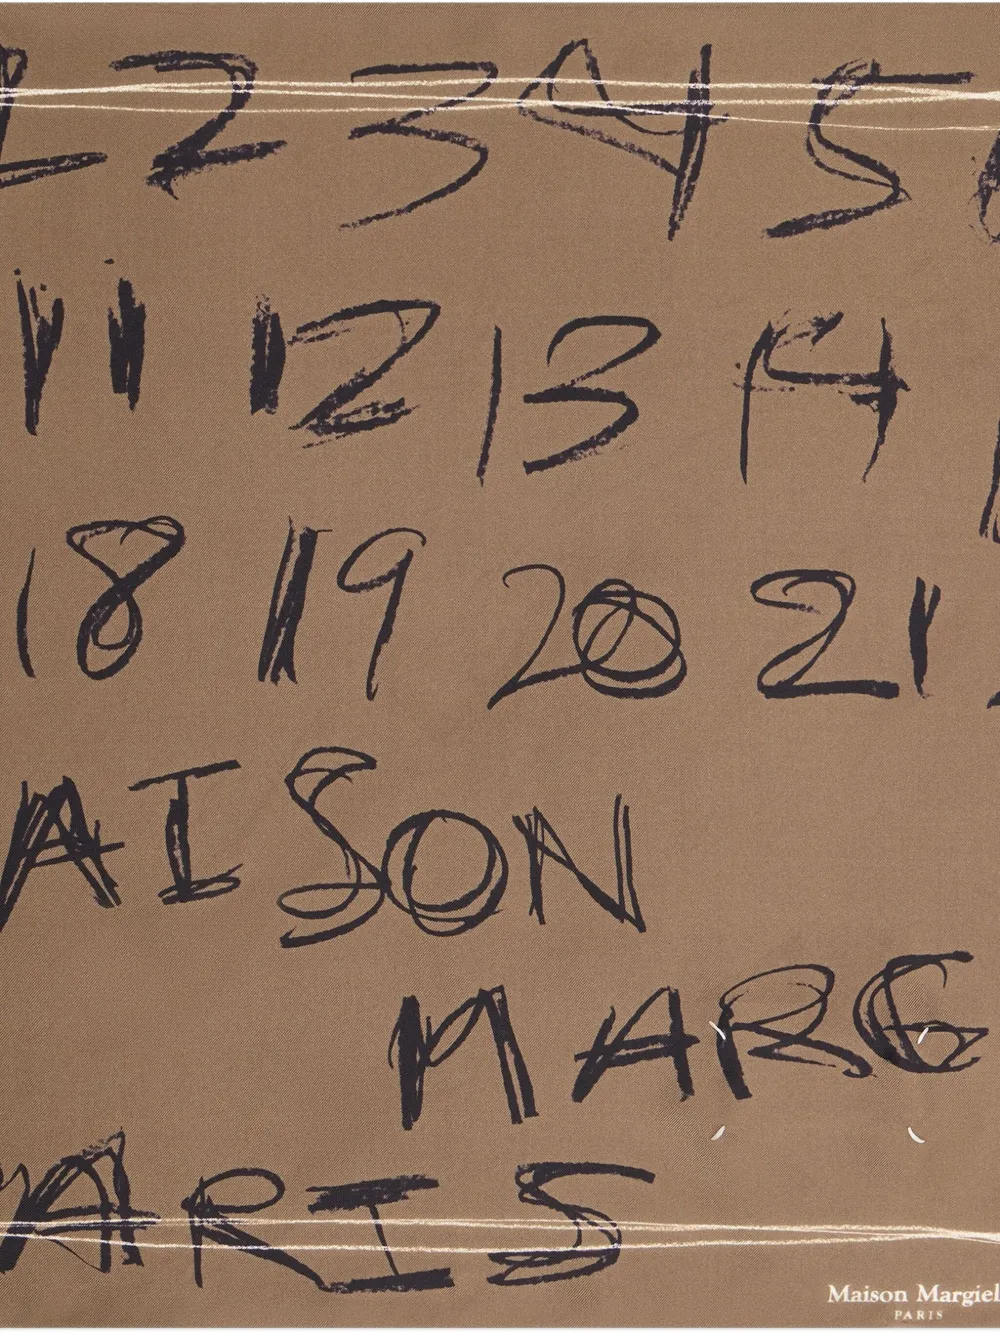 1 2 3 4 5
11 12 13 14
18 19 20 21
AISON
MARG
ARIS
Maison Margiel
PARIS